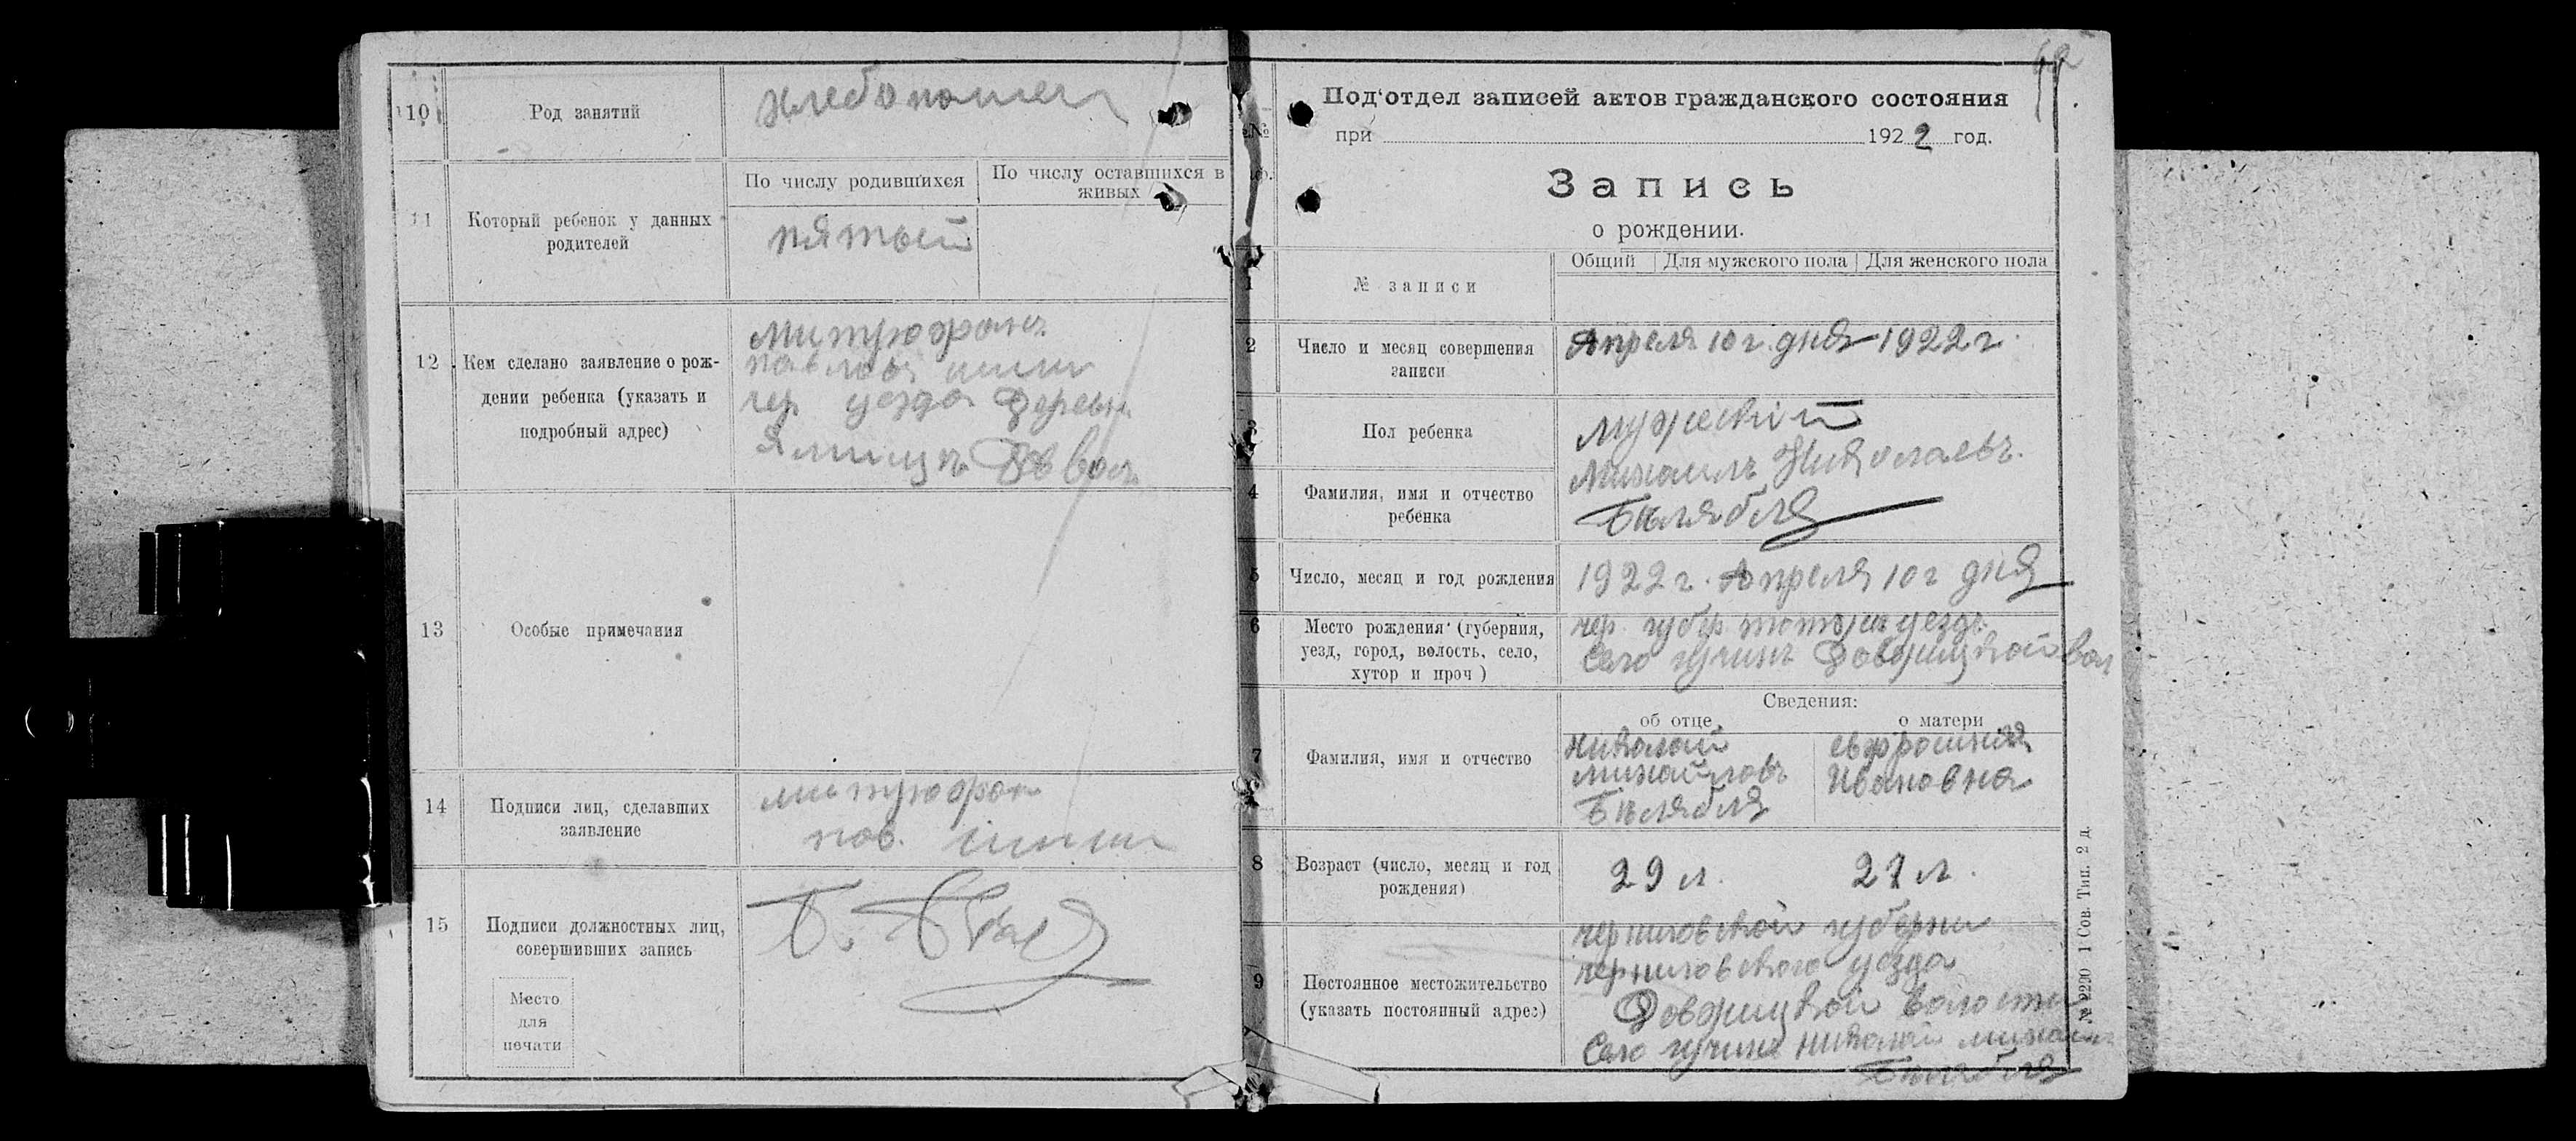 10
Род занятий
хлебопашец
11
Который ребенок у данных
родителей
По числу родившихся
По числу оставшихся в
живых
пятый
12
Кем сделано заявление о рож-
дении ребенка (указать и
подробный адрес)
Митрофанъ
павловъ
чер уезда Деревн
вол
13
Особые примечания
14
Подписи лиц, сделавших
заявление
митрофан
пав.
15
Подписи должностных лиц,
совершивших запись
Место
для
печати
Под'отдел записей актов гражданского состояния
при 1922 год.
Запись
о рождении.
1
№ записи
Общий
Для мужского пола
Для женского пола
2
Число и месяц совершения
записи
Апреля 10 г. дня 1922 г.
3
Пол ребенка
мужеский
4
Фамилия, имя и отчество
ребенка
Михаилъ Николаевъ
Бѣлябля
5
Число, месяц и год рождения
1922 г. Апреля 10 г дня
6
Место рождения (губерния,
уезд, город, волость, село,
хутор и проч)
чер. губер уездъ
Село гучинъ Довжицкой вол
Сведения:
об отце
о матери
7
Фамилия, имя и отчество
Николай
михайловъ
Бѣлябля
евфросиния
Ивановна
8
Возраст (число, месяц и год
рождения)
29 л.
27 л.
9
Постоянное местожительство
(указать постоянный адрес)
черниговской губернии
черниговского уезда
Довжицкой волости
Село гучинъ николай михаил
Бѣлябля
№ 9220 1 Сов. Тип. 2 д.